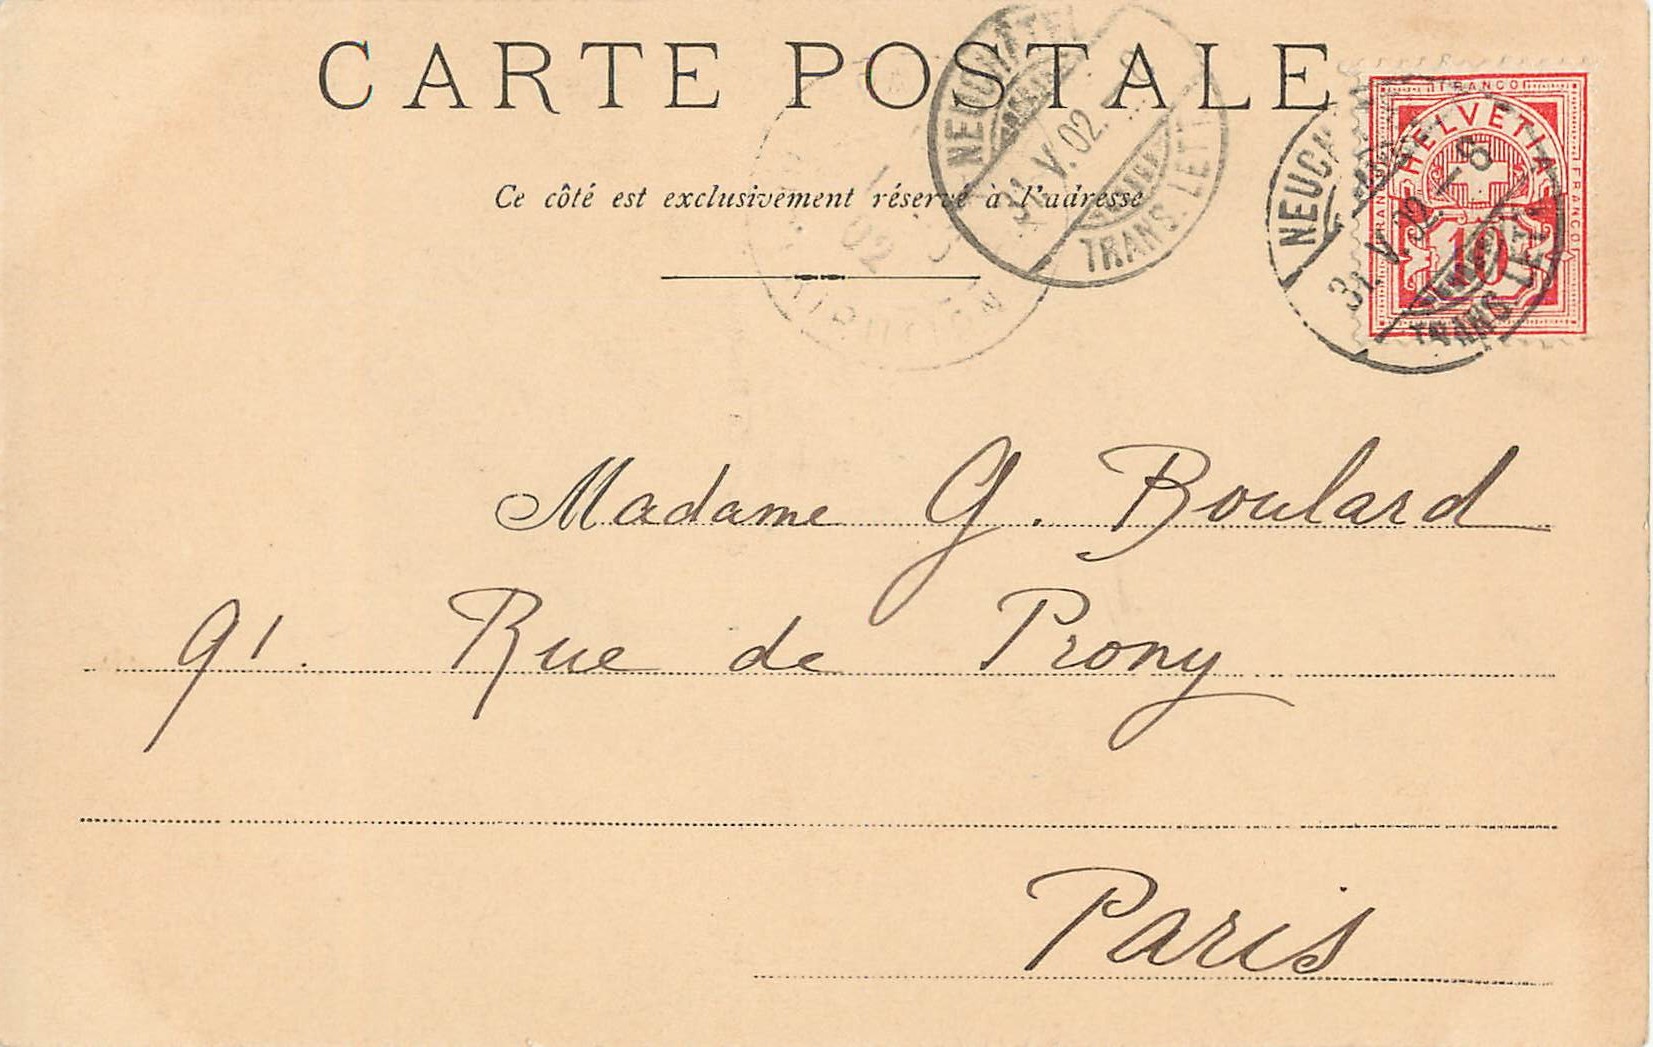 CARTE POSTALE
Ce côté est exclusivement réservé à l'adresse
NEUCHÂTEL
31.V.02.-8
TRANS. LETT.
NEUCH
31.V.02.-8
TRANS. LETT.
02
FRANCO
FRANCO
FRANCO
HELVETIA
10
Madame G. Boulard
91. Rue de Prony
Paris